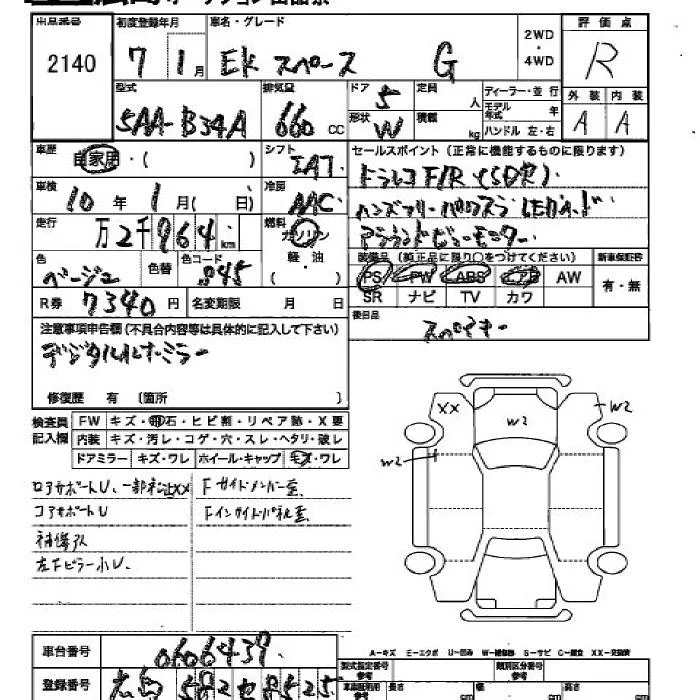 出品番号 初度登録年月 車名・グレード 2WD ・ 4WD 評価点
2140 7 1月 EK スペース G R
型式 排気量 ドア 5 定員 人 ディーラー・並行 外装 内装
5AA-B34A 660 CC 形状 W 積載 kg モデル年式 年 A A
ハンドル 左・右
車歴 自家用・( ) シフト IAT セールスポイント(正常に機能するものに限ります)
車検 10年 1月( 日) 冷房 AAC ドラレコ F/R
走行 万2千964km 燃料 ガソリン 軽・油 ( )
アラウンドビューモニター
色 ベージュ 色替 色コード 装備品(純正品に限り○をつけてください) 新車保証書
PS PW ABS AW 有・無
R券 7340円 名変期限 月 日 SR ナビ TV カワ
注意事項申告欄(不具合内容等は具体的に記入して下さい) 後日品
デジタルルームミラー スペアキー
修復歴 有 〔箇所 〕
検査員記入欄 FW キズ・飛石・ヒビ割・リペア跡・X要
内装 キズ・汚レ・コゲ・穴・スレ・ヘタリ・破レ
ドアミラー キズ・ワレ ホイール・キャップ キズ・ワレ
XX W2 W2
W2
コアサポートU
Fサイドメンバー歪
補修アト
左Fピラー小U
車台番号 0606439
A-キズ E-エクボ U-凹み W-補修跡 S-サビ C-腐食 XX-交換済
登録番号 広島 582 せ 8525
型式指定番号 参考 類別区分番号 参考
長さ cm 幅 cm 高さ cm